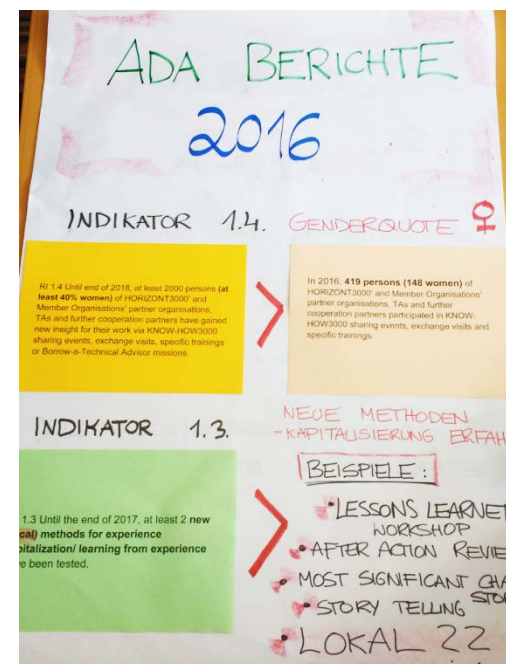 ADA BERICHTE
2016
INDIKATOR 1.4. GENDERQUOTE ♀
RI 1.4 Until end of 2018, at least 2000 persons (at
least 40% women) of HORIZONT3000' and
Member Organisations' partner organisations,
TAs and further cooperation partners have gained
new insight for their work via KNOW-HOW3000
sharing events, exchange visits, specific trainings
or Borrow-a-Technical Advisor missions.
>
In 2016, 419 persons (148 women) of
HORIZONT3000' and Member Organisations'
partner organisations, TAs and further
cooperation partners participated in KNOW-
HOW3000 sharing events, exchange visits and
specific trainings.
INDIKATOR 1.3.
NEUE METHODEN
-KAPITALISIERUNG ERFAH
1.3 Until the end of 2017, at least 2 new
cal) methods for experience
pitalization/ learning from experience
e been tested.
>
BEISPIELE:
• LESSONS LEARNET
WORKSHOP
• AFTER ACTION REVIE
• MOST SIGNIFICANT CHA
STO
• STORY TELLING
• LOKAL 22